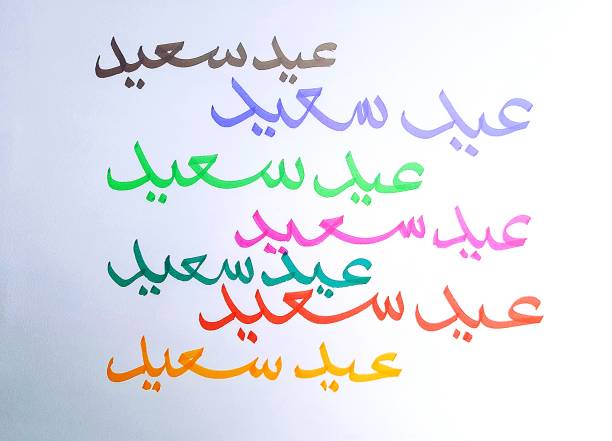 عيد سعيد
عيد سعيد
عيد سعيد
عيد سعيد
عيد سعيد
عيد سعيد
عيد سعيد